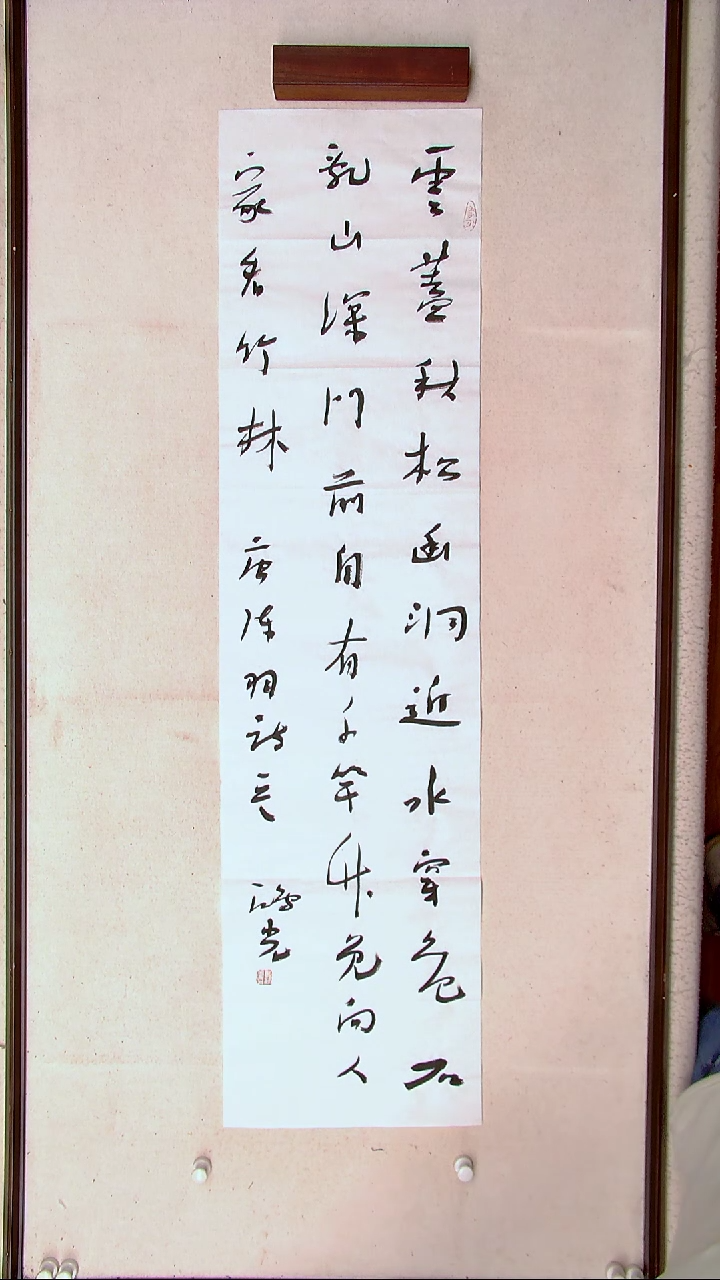 雲蓋秋松幽洞近水穿危石
亂山深門前自有千竿竹免向人
家看竹林 唐陳羽詩
鴻光